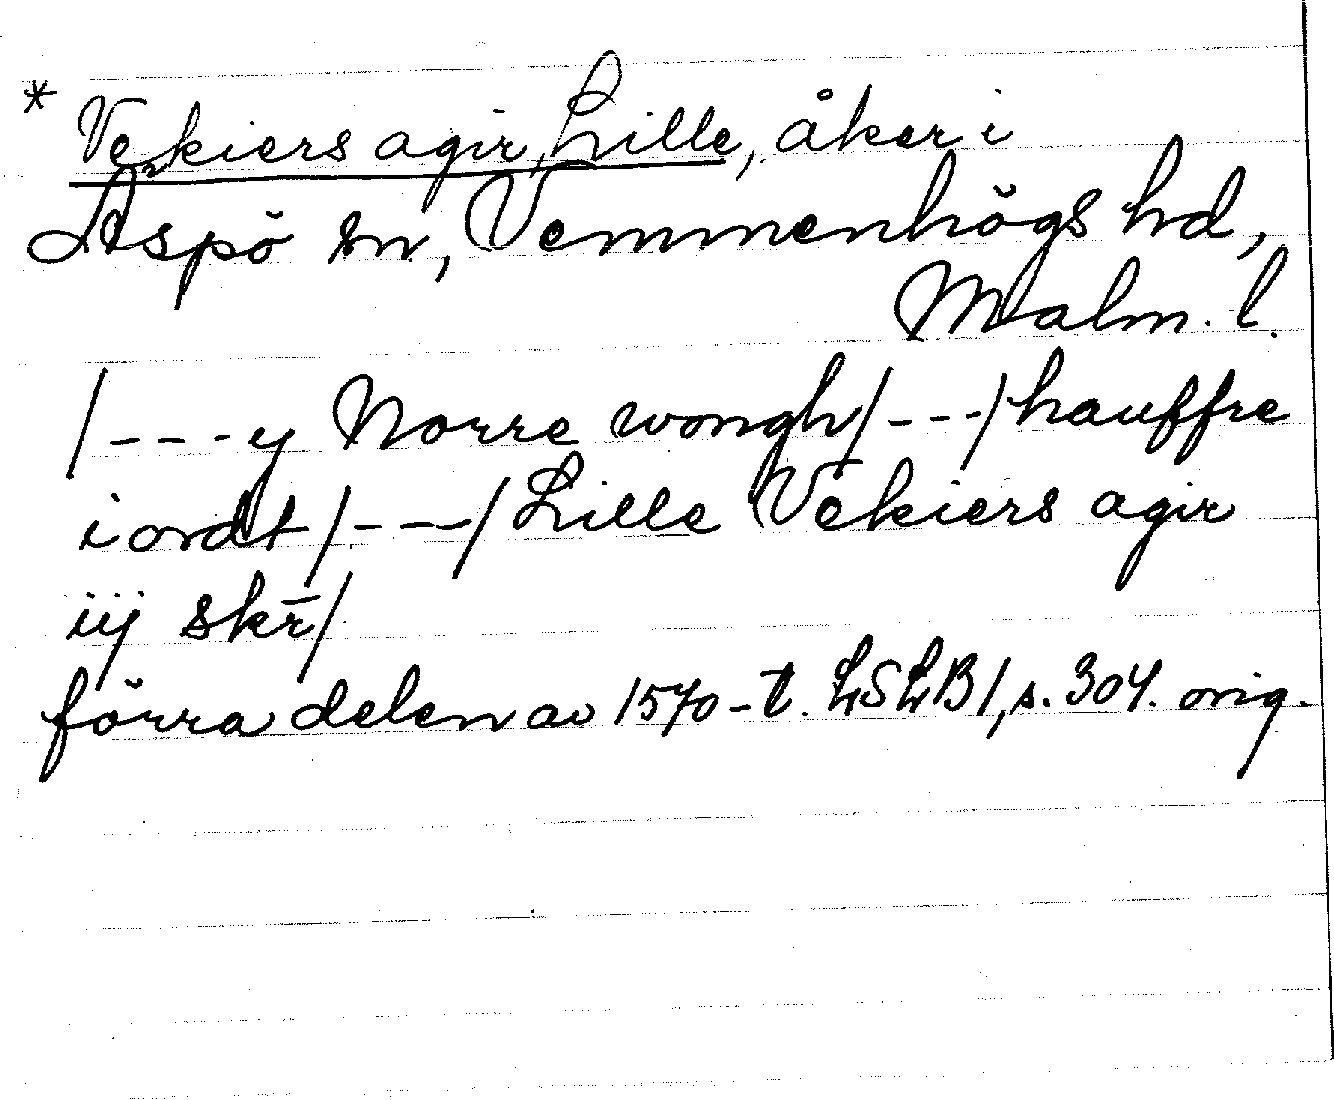 * Vekiers agir, Lille, åker i
Äspö sn, Vemmenhögs hd,
Malm. l.
/---y Norre wongh/---/hauffre
iordt/---/Lille Vekiers agir
iij skr̄/
förra delen av 1570-t. LSLB1, s. 304. orig.